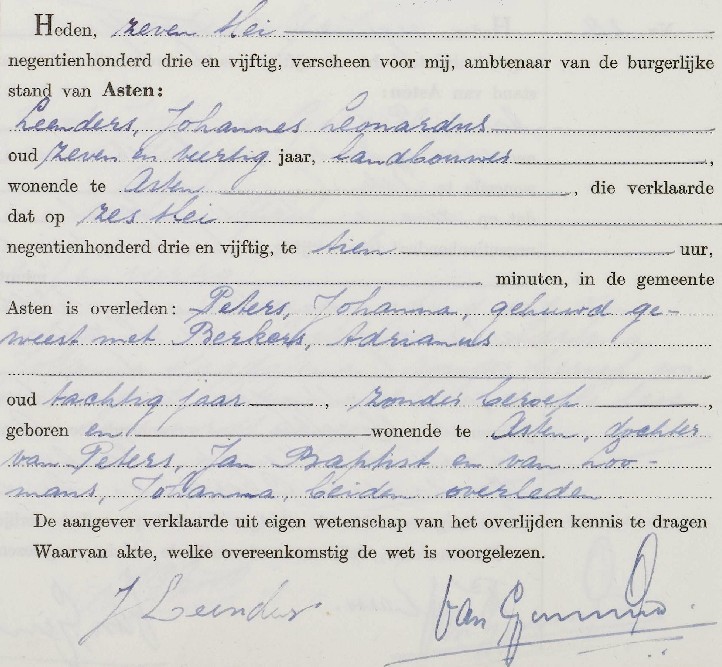 Heden, zeven Mei
negentienhonderd drie en vijftig, verscheen voor mij, ambtenaar van de burgerlijke
stand van Asten:
Leenders, Johannes Leonardus
oud zeven en veertig jaar, landbouwer,
wonende te Asten, die verklaarde
dat op zes Mei
negentienhonderd drie en vijftig, te tien uur,
minuten, in de gemeente
Asten is overleden: Peters, Johanna, gehuwd ge-
weest met Berkers, Adrianus
oud tachtig jaar, zonder beroep,
geboren en wonende te Asten, dochter
van Peters, Jan Baptist en van Loo-
mans, Johanna, beiden overleden
De aangever verklaarde uit eigen wetenschap van het overlijden kennis te dragen
Waarvan akte, welke overeenkomstig de wet is voorgelezen.
J Leenders.